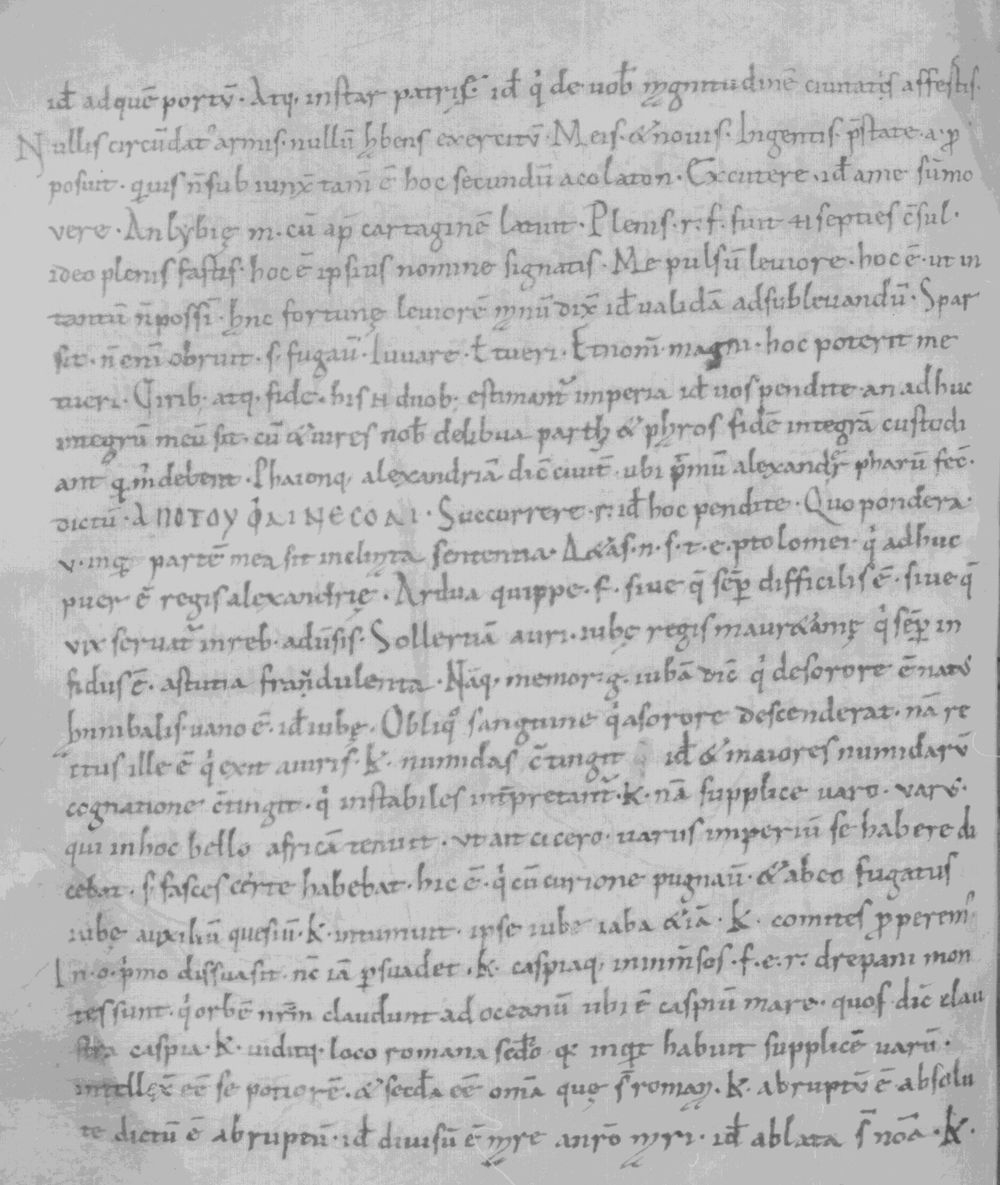 id̄ ad quē portū · Atq; instar patrię id̄ q̇ de uob̄ mgnitudinē ciuitatis affectis.
Nullis circūdatꝰ armis · nullū hbens exercitū · Meis · & nouis · Ingentis · p̄state · a · p
posuit · quis n̄ sub iunx̄ tam̄ ē hoc secundū acolaton · Excutere · id̄ a me sūmo
vere · An lybię m · cū ap̄ cartaginē latuit · Plenis · r · f · fuit septies c̄sul ·
ideo plenis fastis · hoc ē ipsius nomine signatis · Me pulsū leuiore · hoc ē · ut in
tantū n̄ possī · hnc fortunę leuiorē mnū dix̄ id̄ ualidā ad subleuandū · Spar
sit · n̄ enī obruit · s · fugaū · Iuuare · t̄ tueri · Et nom̄ magni · hoc poterit me
tueri · Cirib · atq · fide · his duob · estimant̄ imperia id̄ uos pendite · an adhuc
integrū meū sit · cū & uires nob̄ de libua parth & phros fidē integrā custodi
ant q m̄ debent · Phaionq; alexandriā dic̄ ciuit̄ · ubi p̄mū alexandr pharū fec̄ ·
dictū · ΑΠΟΤΟΥ ΦΑΙΝΕCΟΑΙ · Succurrere · r · id̄ hoc pendite · Quo pondera ·
v · inq partē mea sit inclinta sententia · Aetas · n · s · t · e · ptolomei q̇ adhuc
puer ē regis alexandrię · Ardua quippe · f · siue q̄ sēp difficilis ē · siue q̄
vix seruat̄ in reb · aduīsis · Sollertiā auri · iubę regis mauretanię q̇ sēp in
fidus ē · astutia fraudulenta · Nāq · memor · g · iubā dic̄ q̇ de sorore ē natꝰ
hnnibalis uano ē · id̄ iubę · Obliqͦ sanguine q̇ a sorore descenderat · nā re
titus ille ē q̇ exit auiris · K · numidas c̄tingit id̄ & maiores numidarū
cognatione c̄tingit · q̇ instabiles int̄pretant̄ · K · nā supplice uaro · varꝰ ·
qui in hoc bello africā tenuit · vt ait cicero · uarus imperiū se habere di
cebat · s · fasces certe habebat · hic ē · q̇ cū curione pugnaū · & ab eo fugatus
iubę auxiliū quesiū · K · intumuit · ipse iube iaba & iā · K · comites p perem̄
In · o · p̄mo dissuasit · nc̄ iā p suadet · K · caspiaq; inmēsos · f · e · r · drepani mon
tes sunt · q̇ orbē nrm̄ claudunt ad oceanū ubi ē caspiū mare · quos · dic̄ clau
stra caspia · K · uiditq · loco romana sec̄do q; inqt habuit supplicē uarū ·
intellęx̄ eē se potiorē · & sec̄da eē omā quę s̄ roman · K · abruptū ē absolu
te dictū ē abruptū · id̄ diuisū ē mre an r̄o mri · id̄ ablata s̄ noā · K ·